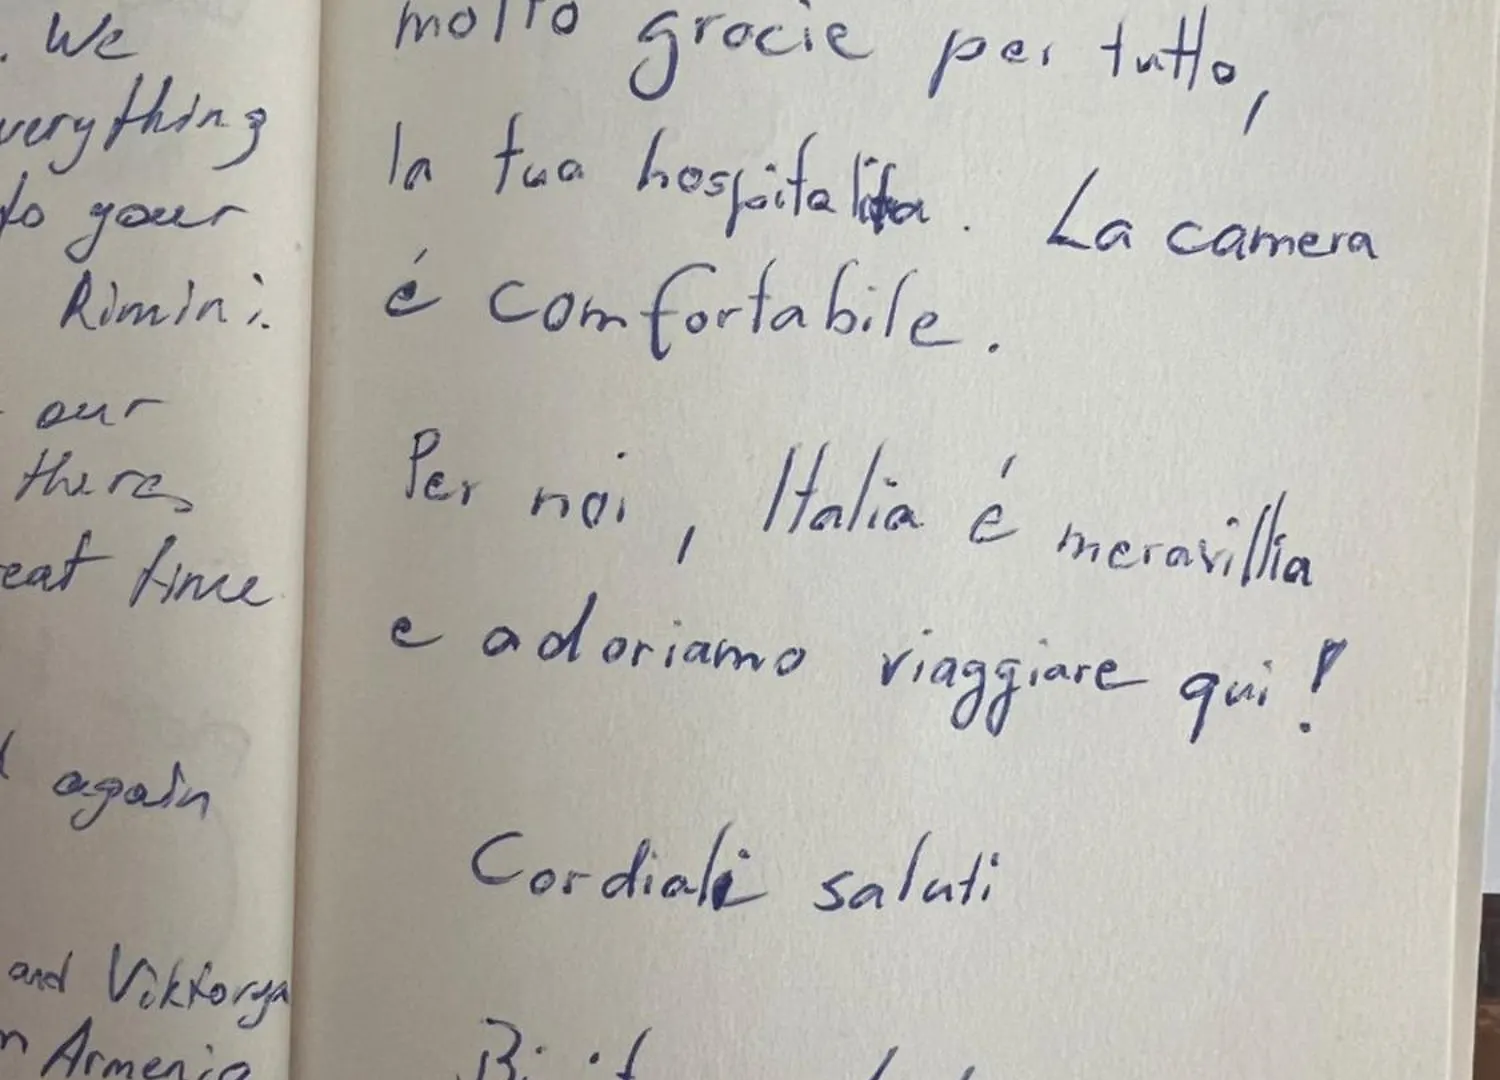 . We
verything
to your
Rimini.
our
there,
eat time
again
and Viktorya
n Armenia
molto gracie per tutto,
la tua hospitalita. La camera
é comfortabile.
Per noi, Italia é meravillia
e adoriamo viaggiare qui!
Cordiali saluti